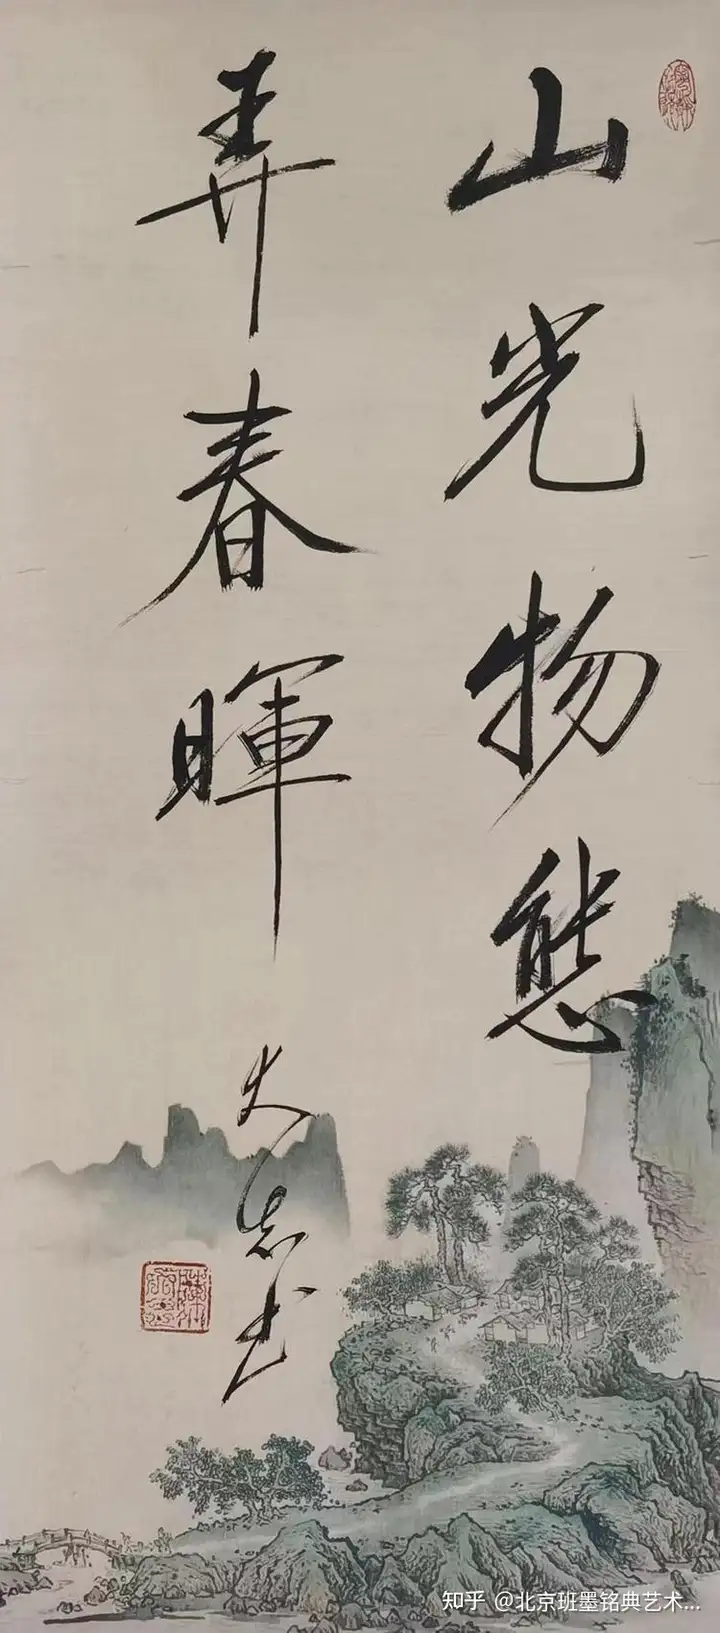 山光物態
弄春暉
大志书
知乎 @北京班墨铭典艺术...